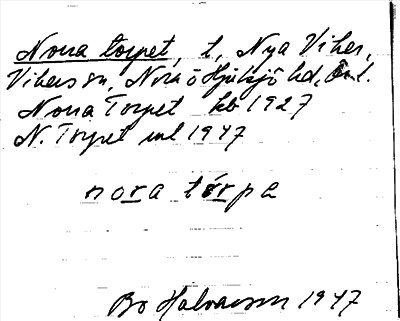 Norra torpet, t, Nya Viker,
Vikers sn, Nora o Hjulsjö hd, Ö.l.
Norra Torpet kb 1927
N. Torpet ml 1947
nora tɷrpe
Bo Halvarson 1947